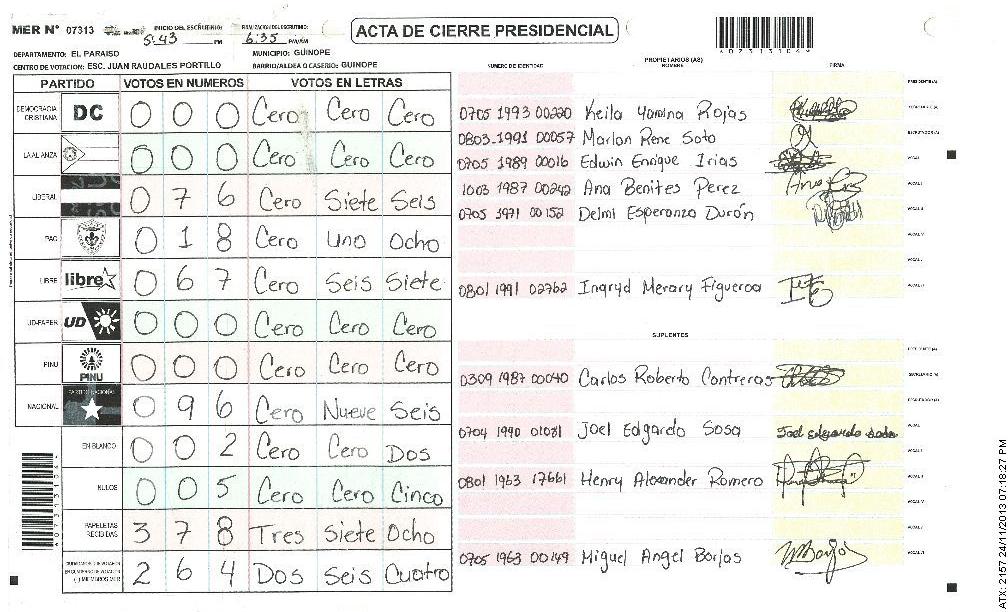 MER Nº 07313 INICIO DEL ESCRUTINIO: 5:43 PM FINALIZACION DEL ESCRUTINIO: 6:35 PM/AM
ACTA DE CIERRE PRESIDENCIAL
DEPARTAMENTO: EL PARAISO MUNICIPIO: GÜINOPE
CENTRO DE VOTACION: ESC. JUAN RAUDALES PORTILLO BARRIO/ALDEA O CASERIO: GUINOPE
PARTIDO VOTOS EN NUMEROS VOTOS EN LETRAS
DEMOCRACIA CRISTIANA DC 0 0 0 Cero Cero Cero
LA ALIANZA 0 0 0 Cero Cero Cero
LIBERAL 0 7 6 Cero Siete Seis
PAC 0 1 8 Cero Uno Ocho
LIBRE libre 0 6 7 Cero Seis Siete
UD-FAPER UD 0 0 0 Cero Cero Cero
PINU PINU 0 0 0 Cero Cero Cero
NACIONAL PARTIDO NACIONAL 0 9 6 Cero Nueve Seis
EN BLANCO 0 0 2 Cero Cero Dos
NULOS 0 0 5 Cero Cero Cinco
PAPELETAS RECIBIDAS 3 7 8 Tres Siete Ocho
2 6 4 Dos Seis Cuatro
PROPIETARIOS (AS)
NUMERO DE IDENTIDAD NOMBRE FIRMA
0705 1993 00220 Keila Yamina Rojas
0803-1991 00057 Marlon Rene Soto
0705 1989 00016 Edwin Enrique Irias
1003 1987 00242 Ana Benites Perez
0705 1971 00152 Delmi Esperanza Durón
0801 1991 02762 Ingryd Merary Figueroa
SUPLENTES
0309 1987 00040 Carlos Roberto Contreras
0704 1990 01031 Joel Edgardo Sosa
0801 1963 17661 Henry Alexander Romero
0705 1963 00149 Miguel Angel Borjas
ATX: 2157 24/11/2013 07:18:27 PM